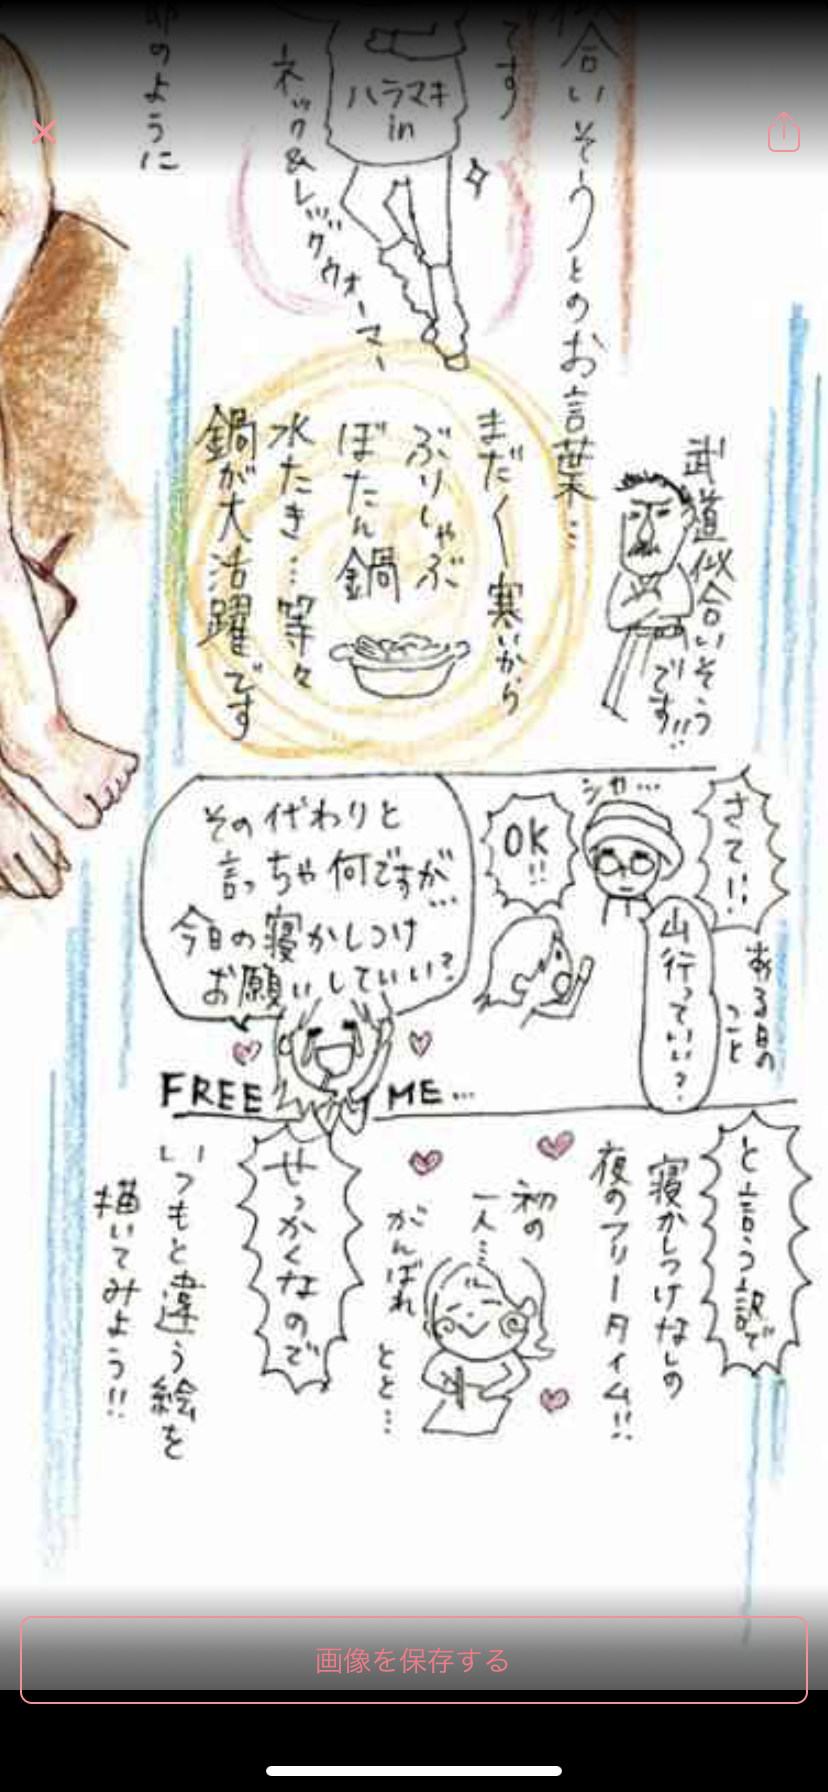 似合いそうとのお言葉…
です
ハラマキ
in
ネック&レッグウォーマー
卵のように
武道似合いそう
です!!
まだまだ寒いから
ぶりしゃぶ
ぼたん鍋
水たき…等々
鍋が大活躍です
さて!!
ある日の
こと
シカ…
山行っていい?
OK!!
その代わりと
言っちゃ何ですが…
今日の寝かしつけ
お願いしていい?
FREE ME…
と言う訳で
寝かしつけなしの
夜のフリータイム!!
初の
一人…
がんばれ
とと…
せっかくなので
いつもと違う絵を
描いてみよう!!
画像を保存する